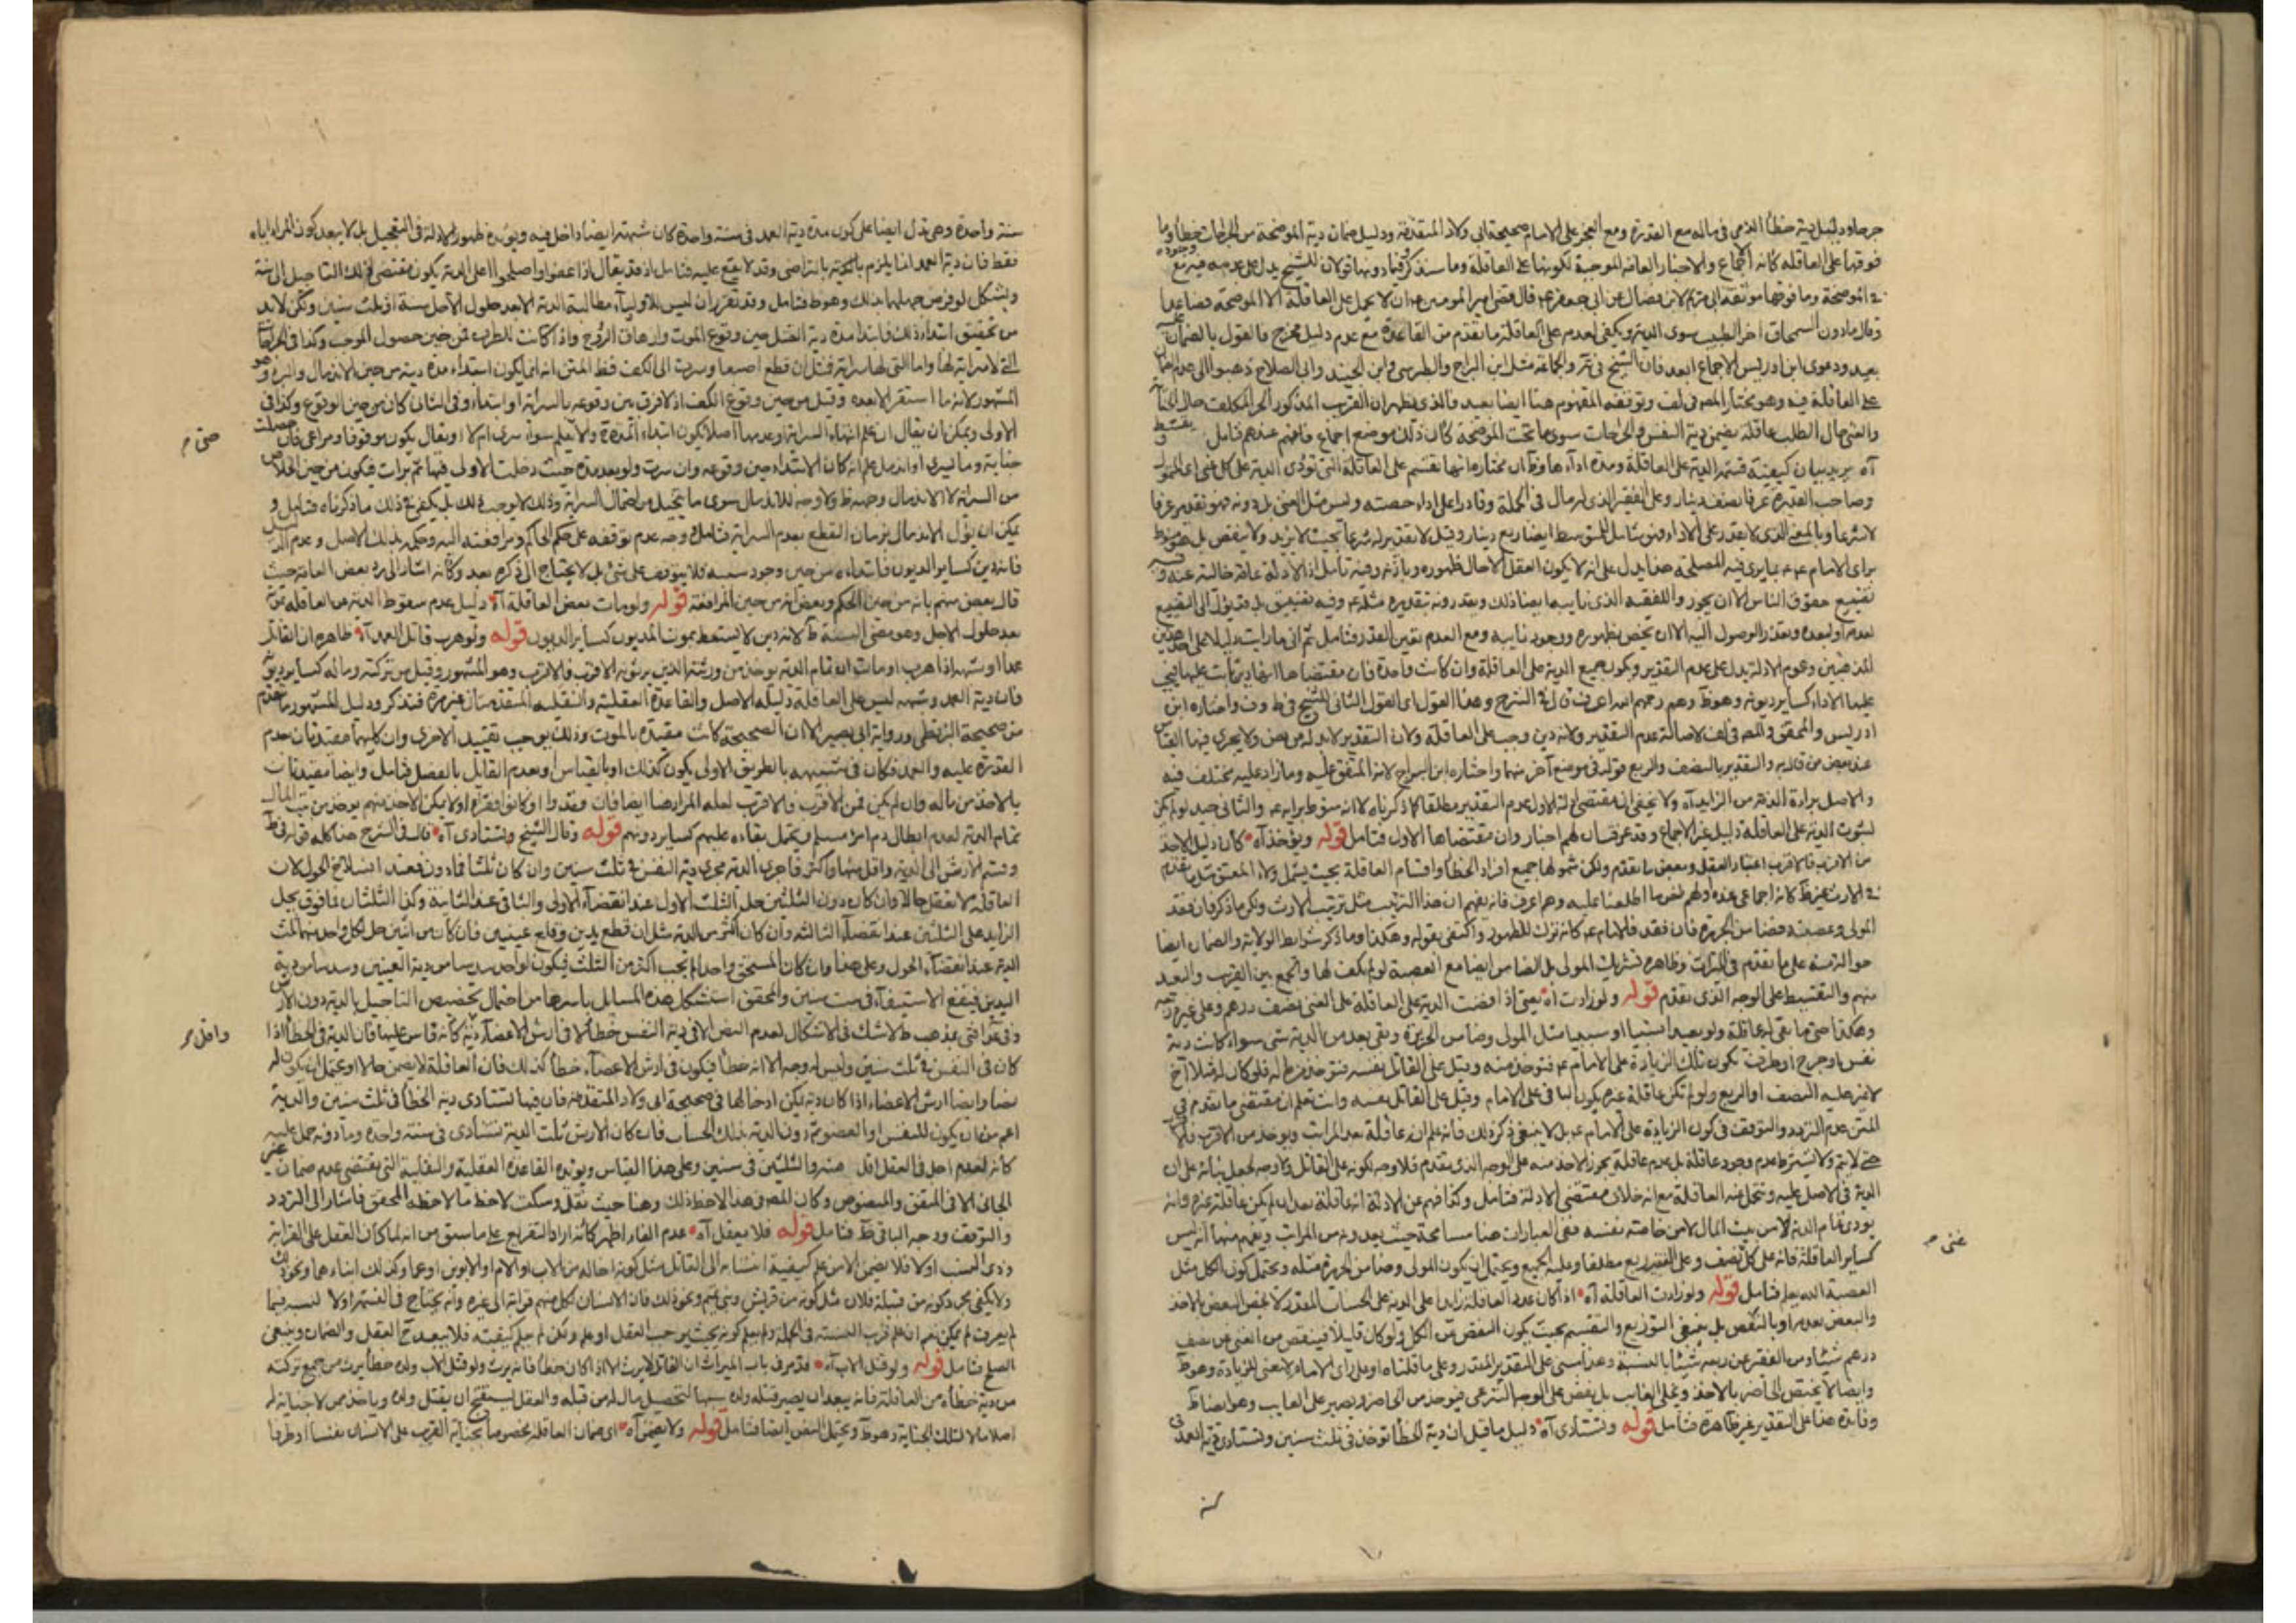 جرحا و دليل دية خطأ الذمي في ماله مع القدرة ومع العجز على الامام صحيحة ابي ولاد المتقدمة ودليل ضمان دية الموضحة من الجراحات خطأ وما
فوقها على العاقلة كانه الاجماع والاخبار العامة الموجبة لكونها على العاقلة وما سنذكر فيما دونها قولان للشيخ يدل على عدمه فيه مع وجوده
في الموضحة وما فوقها موثقة ابي مريم لابن فضال عن ابي جعفر ع قال قضى امير المومنين ع ان لا يحمل على العاقلة الا الموضحة فصاعدا
وقال مادون السمحاق اجر الطبيب سوى الدية ويكفي لعدمه على العاقلة ما تقدم من القاعدة مع عدم دليل مخرج فالقول بالضمان
بعيد ودعوى ابن ادريس الاجماع ابعد فان الشيخ في والجماعة مثل ابن البراج والطبرسي وابن الجنيد وابي الصلاح ذهبوا الى عدم ضمان
العاقلة فيه وهو مختار المصنف في لف وتوقفه المفهوم هنا ايضا بعيد فالذي يظهر ان القريب المذكور الحر المكلف حال الجناية
والغني حال الطلب عاقلة يضمن دية النفس والجراحات سوى ما تحت الموضحة كان ذلك موضع اجماع فافهم عندهم فتامل
آه يريد بيان كيفية قسمة الدية على العاقلة ومدة اداءها وظ ان مختاره انها تقسم على العاقلة التي تؤدى الدية على كل غني اي
وصاحب القدرة عرفا نصف دينار وعلى الفقير الذي له مال في الجملة وقادر على اداء حصته وليس مثل الغني بل دونه فهو تقدير عرفا
لا شرعا وبالمعنى الذي لا يقدر على الاداء فهو شامل للمتوسط ايضا ربع دينار وقيل لا تقدير له شرعا بحيث لا يزيد ولا ينقص بل هو منوط
براي الامام ع بما يرى فيه المصلحة هذا يدل على انه لا يكون العقل الا حال ظهوره وباذنه وفيه تامل اذ الادلة عامة خالية عنه
تضييع حقوق الناس الا ان يجوز للفقيه الذي نايبه ايضا ذلك وبعد دونه بتقديره مثله وفيه تضييق بل قد يؤل الى التضييع
لعدمه او لبعده وتعذر الوصول اليه الا ان يخص بظهوره ووجود نايبه ومع العدم يقين العذر فتامل ثم اني ما رايت دليلا على احد هذين
المذهبين وعموم الادلة يدل على عدم التقدير وبكون جميع الدية على العاقلة وان كانت واحدة فان مقتضاها انها دين ثابت عليها فيجب
عليها الاداء كساير ديونه وهو ظ وهم رحمهم الله اعرف قال في الشرح وهذا القول اي القول الثاني للشيخ في ط وف واختاره ابن
ادريس والمحقق والمصنف في لف لاصالة عدم التقدير ولانه دين وجب على العاقلة ولان التقدير لابد له من نص ولا يجري فيها القياس
عند بعض من قال به والتقدير بالنصف والربع قوله في موضع آخر منهما واختاره ابن البراج لانه المتفق عليه وما زاد عليه مختلف فيه
والاصل براءة الذمة من الزايد آه ولا يخفى ان مقتضى ادلة الاول عدم التقدير مطلقا كما ذكرناه لا انه منوط برايه ع والثاني جيد لو لم يكن
لثبوت الدية على العاقلة دليل غير الاجماع وقد عرفت ان لهم اخبار وان مقتضاها الاول فتامل قوله ويؤخذ آه كان دليل الاخذ
من الاقرب فالاقرب اعتبار العقل وبعض ما تقدم ولكن شمولها جميع افراد الخطأ واقسام العاقلة بحيث يشمل ولاء المعتق مثل ما تقدم
في الارث غير ظ كانه اجماعي عندهم او لهم نص ما اطلعنا عليه وهم اعرف فانه يفهم ان هذا الترتيب مثل ترتيب الارث ولكن ما ذكر فان فقد
المولى وعصبته فضامن الجريرة فان فقد فالامام ع كانه ترك للظهور واكتفى بقوله وهكذا وما ذكر شرايط الولاية والضمان ايضا
حوالة منه على ما تقدم في الميراث وظاهره تشريك المولى بل الضامن ايضا مع العصبة لو لم يكف لها والجمع بين القريب والبعيد
منهم والتقسيط على الوجه الذي تقدم قوله ولو زادت آه يعني اذا فضت الدية على العاقلة على الغني نصف درهم وعلى غيره ربعه
وهكذا حتى ما بقي له عاقلة ولو بعيدا نسبيا او سببيا مثل المولى وضامن الجريرة وبقي بعد من الدية شي سواء كانت دية
نفس او جرح او طرف تكون تلك الزيادة على الامام ع فتؤخذ منه وقيل على القاتل نفسه فتؤخذ من ماله فلو كان له مثلا اخ
لا غير عليه النصف او الربع ولو لم تكن عاقلة غيره يكون الباقي على الامام وقيل على القاتل نفسه وانت تعلم ان مقتضى ما تقدم في
المتن عدم التردد والتوقف في كون الزيادة على الامام ع بل لا ينبغي ذكر ذلك فانه علم ان عاقلة بعد المراتب ويؤخذ من الاقرب فالاقرب
حتى لا يتم ولا يشترط عدم وجود عاقلة بل عدم عاقلة يجوز الاخذ منه على الوجه الذي تقدم فلا وجه لكونه على القاتل ولا وجه لجعل بنائه على ان
الدية في الاصل عليه وتتحمل عنه العاقلة مع انه خلاف مقتضى الادلة فتامل وكذا فهم عن الادلة انه عاقلة بعد ان لم يكن عاقلة غيره وانه
يؤدي تمام الدية لا من بيت المال لا من خاصته نفسه ففي العبارات هنا مسامحة حيث يعدونه من المراتب ويفهم منها انه ليس
كساير العاقلة فانه على كل نصف وعلى الفقير ربع مطلقا وعليه الجميع ويحتمل ان يكون المولى وضامن الجريرة مثله ويحتمل كون الكل مثل
العصبة الله يعلم فتامل قوله ولو زادت العاقلة آه اذا كان عدد العاقلة زايدا على الدية على الحساب المقدر لا يخص البعض بالاخذ
والبعض بعدمه او بالنقص بل ينبغي التوزيع والتقسيم بحيث يكون البعض من الكل ولو كان قليلا فينقص من الغني من نصف
درهم شيئا ومن الفقير من ربعه شيئا بالنسبة وهذا مبني على التقدير المقدر وعلى ما قلناه او على راي الامام لا معنى للزيادة وهو ظ
وايضا لا يختص الحاضر بالاخذ ويخلى الغايب بل يفض على الوجه الشرعي فيؤخذ من الحاضر ويصبر على الغايب وهو ايضا ظ
وفايدة هذا على التقدير غير ظاهرة فتامل قوله وتستادى آه دليل ما قيل ان دية الخطأ تؤخذ في ثلث سنين وتستادى دية العمد في
غني
سنة
سنة واحدة وهي تدل ايضا على كون مدة دية العمد في سنة واحدة كان شبهه ايضا داخل فيه ويؤيده ظهور الادلة في التعجيل بل لا يبعد كون المراد اياه
فقط فان دية العمد انما يلزم بالتراضي وقد لا يقع عليه فتامل اذ قد يقال اذا عفوا واصلحوا على الدية يكون مقتضى ذلك التاجيل الى سنة
ويشكل لو فرض جهلهما بذلك وهو ظ فتامل وقد تقرر ان ليس للاولياء مطالبة الدية الا بعد حلول الاجل سنة او ثلث سنين ولكن لابد
من تحقيق ابتداء ذلك فابتداء مدة دية القتل حين وقوع الموت وازهاق الروح واذا كانت للطرف فمن حين حصول الموجب وكذا في الجراحات
التي لا سراية لها واما التي لها سراية فمثل ان قطع اصبعا وسرت الى الكف فظ المتن انه انما يكون ابتداء مدة دية من حين الاندمال والبرء وهو
المشهور لانه ما استقر الا بعده وقيل من حين وقوع الكف اذ لا فرق بين وقوعه بالسراية او ابتداء وفي الثاني كان من حين الوقوع وكذا في
الاولى ويمكن ان يقال ان علم انتهاء السراية او عدمها اصلا يكون ابتداء المدة ولا يعلم سواء سرى ام لا او يقال يكون موقوفا ومراعى فان حصلت
جناية وما يسري او اندمل علم انه كان الابتداء حين وقوعه وان سرت ولو بعد مدة حيث دخلت الاولى فيها ثم برات فيكون من حين الخلاص
من السراية لا الاندمال وجه ظ ولا وجه للاندمال سوى ما يتخيل من احتمال السراية وذلك لا يوجب ذلك بل يكفي في ذلك ما ذكرناه فتامل و
يمكن ان يؤل الاندمال بزمان القطع بعدم السراية فتامل وجه عدم توقفه على حكم الحاكم ومرافعته اليه وحكمه بذلك الاصل وعدم الدليل
فانه دين كساير الديون فابتداءه من حين وجود سببه فلا يتوقف على شيء بل لا يحتاج الى ذكره بعد وكانه اشار الى رد بعض العامة حيث
قال بعض منهم بانه من حين الحكم وبعض انه من حين المرافعة قوله ولو مات بعض العاقلة آه دليل عدم سقوط الدية من العاقلة بموته
بعد حلول الاجل وهو مضي السنة ظ لانه دين لا يسقط بموت المديون كساير الديون قوله ولو هرب قاتل العمد آه ظاهره ان القاتل
عمدا او شبهه اذا هرب او مات ان تمام الدية يؤخذ من ورثته الذين يرثونه الاقرب فالاقرب وهو المشهور وقيل من تركته وماله كساير ديونه
فان دية العمد وشبهه ليس على العاقلة دليله الاصل والقاعدة العقلية والنقلية المتقدمتان غير مرة فتذكر ودليل المشهور ما تقدم
من صحيحة البزنطي ورواية ابي بصير الا ان الصحيحة كانت مقيدة بالموت وذلك يوجب تقييد الاخرى وان كليهما مقيدتان بعدم
القدرة عليه والعمد فكان في شبيهه بالطريق الاولى يكون كذلك او بالقياس او بعدم القايل بالفصل فتامل وايضا مقيدتان
بالاخذ من ماله وان لم يكن فمن الاقرب فالاقرب لعله المراد هنا ايضا فان فقدوا او كانوا فقراء او لا يمكن الاخذ منهم يؤخذ من بيت المال
تمام الدية لعدم ابطال دم امرء مسلم ويحتمل بقاءه عليهم كساير ديونهم قوله وقال الشيخ وتستادى آه قال في الشرح هذا كله قوله في ط
وقسم الارش الى الدية واقل منها واكثر فاجرى الدية مجرى دية النفس في ثلث سنين وان كان ثلثا فمادون فعند انسلاخ الحول لان
العاقلة لا تعقل حالا وان كان دون الثلثين حل الثلث الاول عند انقضاء الاولى والباقي عند الثانية وكذا الثلثان فما فوق يحل
الزايد على الثلثين عند انقضاء الثالثة وان كان اكثر من الدية مثل ان قطع يدين وقلع عينين فان كان من اثنين حل لكل واحد منهما ثلث
الدية عند انقضاء الحول وعلى هذا وان كان المستحق واحدا لم يجب اكثر من الثلث فيكون لواحد سدسا من دية العينين وسدسا من دية
اليدين فيقع الاستيفاء في ست سنين والمحقق استشكل هذه المسايل باسرها من احتمال تخصيص التاجيل بالدية دون الارش
وفي افتى بمذهب ط لا شك في الاشكال لعدم النص الا في دية النفس خطأ لا في ارش الاعضاء ودية كانه قاس عليها فان الدية في الخطأ اذا
كان في النفس في ثلث سنين وليس له وجه الا انه خطأ فيكون في ارش الاعضاء خطأ كذلك فان العاقلة لا يضمن حالا ويحتمل ان يكون له
نصا وايضا ارش الاعضاء اذا كان دية يمكن ادخالها في صحيحة ابي ولاد المتقدمة فان فيها تستادى دية الخطأ في ثلث سنين والدية
اعم من ان يكون للنفس او العضو ثم دون الدية بذلك الحساب فان كان الارش ثلث الدية تستادى في سنة واحدة وما دونه حمل عليه
كانه لعدم اجل في العقل اقل منه والثلثين في سنين وعلى هذا القياس ويؤيده القاعدة العقلية والنقلية التي يقتضي عدم ضمان غير
الجاني الا في المتفق والمنصوص وكان المصنف في هذا لاحظ ذلك وهنا حيث نقل وسكت لاحظ ما لاحظه المحقق فاشار الى التردد
والتوقف ووجه الباقي ظ فتامل قوله فلا يعقل آه عدم الفاء اظهر كانه اراد التفريع على ما سبق من انه لما كان العقل على القرابة
وذوي النسب اولا فلا يضمن الا من علم كيفية انتسابه الى القاتل مثل كونه اخا له من الاب او الام او الابوين او عما وكذلك ابناءهما ونحو ذلك
ولا يكفي مجرد كونه من قبيلة فلان مثل كونه من قريش وبني تميم ونحو ذلك فان الانسان لكل منهم قرابة الى غيره وانه يحتاج في القسمة اولا لنسبه فيما
لم يعرف لم يمكن نعم ان علم قرب النسبة في الجملة ولم يعلم كونه بحيث يرجب العقل او علم ولكن لم يعلم كيفيته فلا يبعد ح العقل والضمان وينبغي
الصلح فتامل قوله ولو قتل الاب آه قد مر في باب الميراث ان القاتل لا يرث الا اذا كان خطأ فانه يرث ولو قتل الاب ولده خطأ يرث من جميع تركته
من دية خطأه من العاقلة فانه يبعد ان يصير قتله ولده سببا لتحصيل مال له من قبله والعقل يستقبح ان يقتل ولده وياخذ ممن لا جناية له
اصلا مالا لتلك الجناية وهو ظ ويحتمل النص ايضا فتامل قوله ولا يضمن آه اي ضمان العاقلة مخصوصا بجناية القريب على الانسان نفسا او طرفا
حتى
واقل